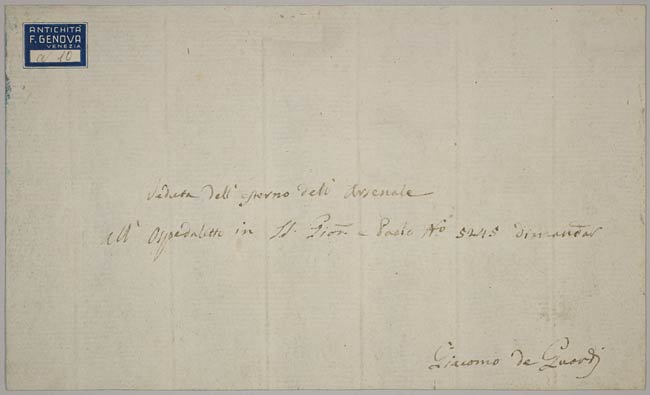 ANTICHITÀ
F. GENOVA
VENEZIA
a/10
Veduta dell' esterno dell' Arsenale
all' Ospedaletto in SS. Gion. e Paolo No 5245 dimandar
Giacomo de Guardi